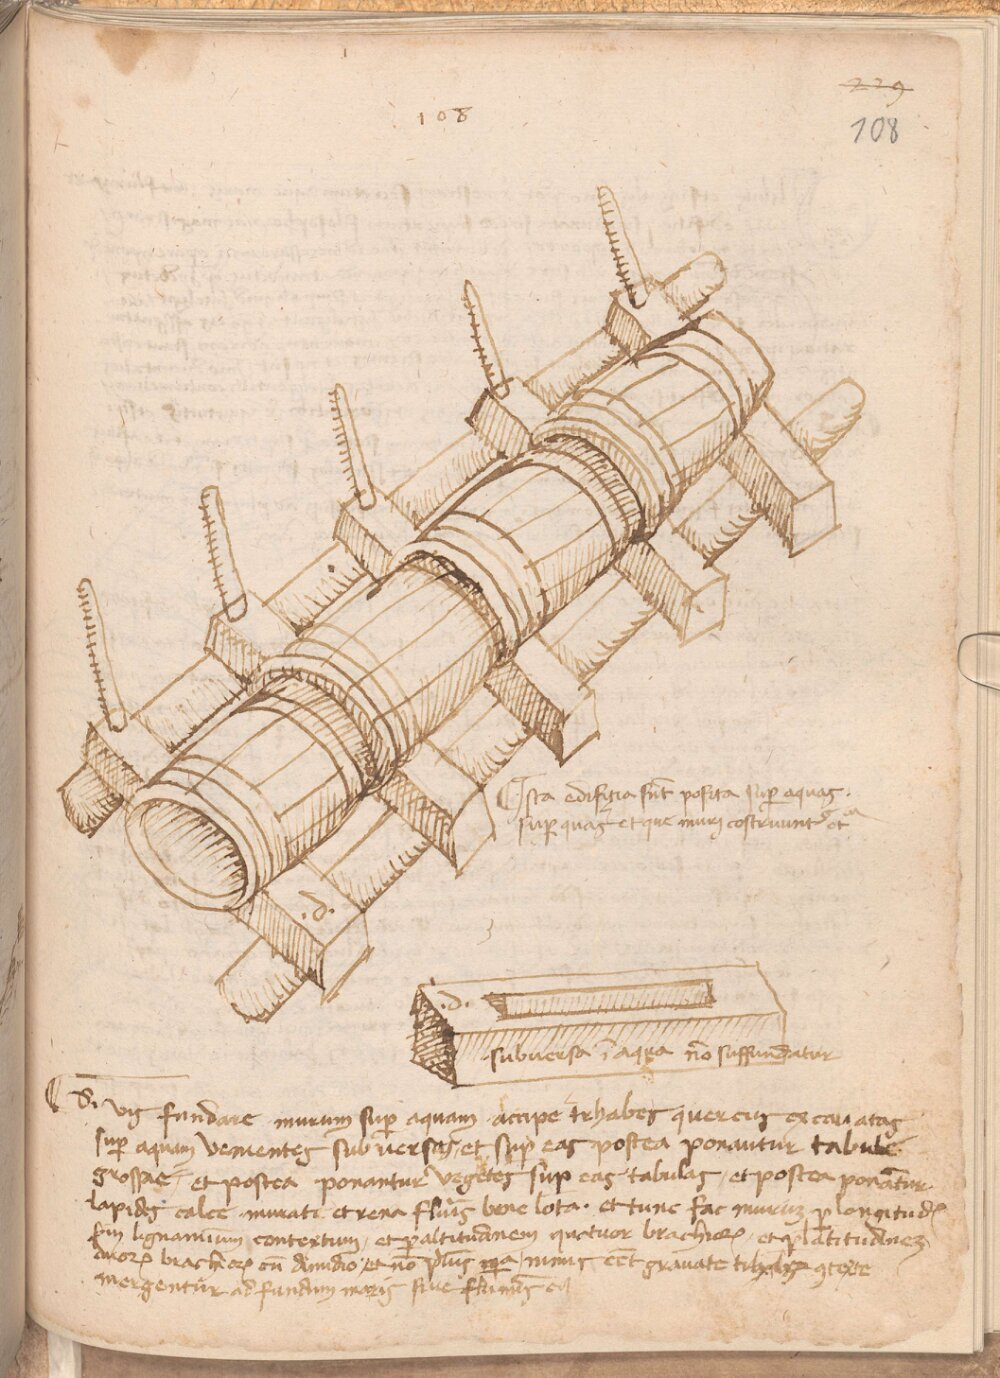 229
108
108
Ista edifitia sūt posita sup̄ aquas.
sup̄ quas et que muri costruunt̄
.d.
.d.
subversa ī aqua nō suffundatur
Si vis fundare murum sup̄ aquam accipe trhabes quercus excavatas
sup̄ aquam vementes subversas et sup̄ eas postea ponantur tabule
grosse et postea ponantur vegetes sup̄ eas tabulas et postea ponātur
lapides calce murati et rena flūis bene lota. et tunc fac murum p longitudī
lignamium contextum et p altitudinem quatuor brachiorꝫ et p latitudinez
duorꝫ brachiorꝫ cū dimidio et nō plus nimis eēt gravate
mergentur ad fundum maris sive fluminis